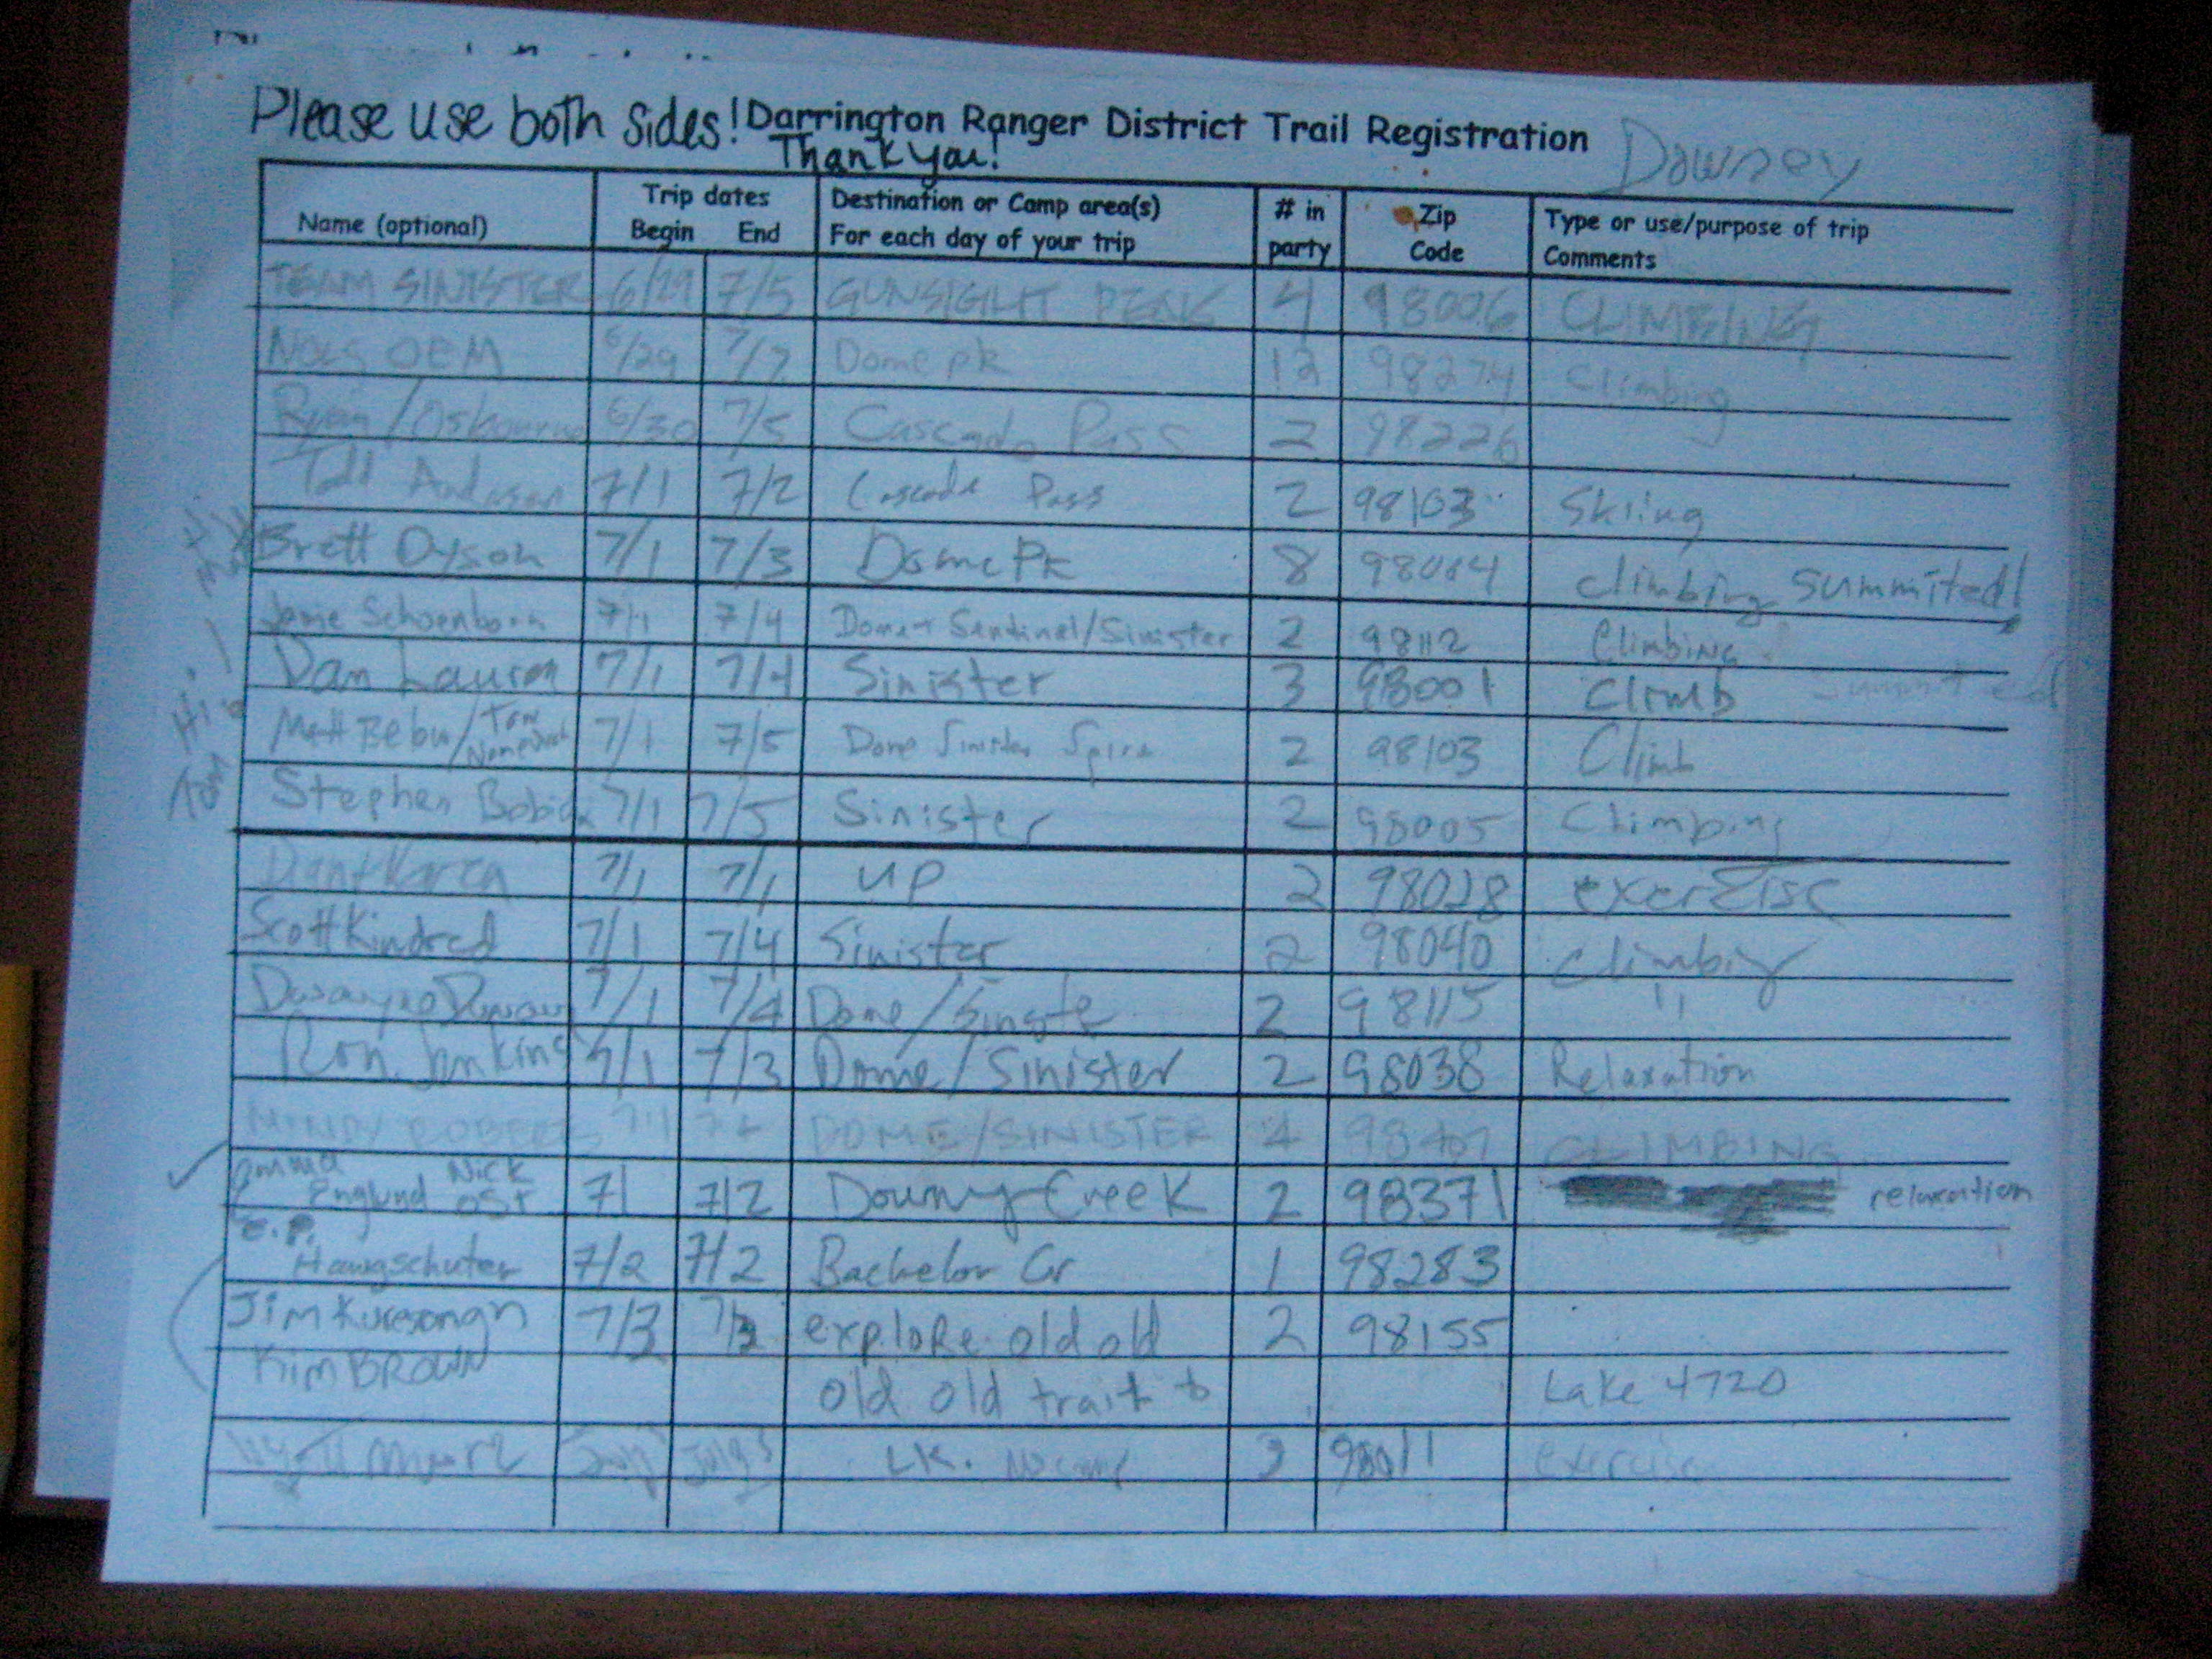 Please use both sides! Darrington Ranger District Trail Registration
Thank you!
Downey
Name (optional) Trip dates Begin End Destination or Camp area(s) For each day of your trip # in party Zip Code Type or use/purpose of trip Comments
TEAM SINISTER 6/29 7/5 GUNSIGHT PEAK 4 98006 CLIMBING
OEM 6/29 7/7 Dome pk 12 98274 Climbing
Ryan/Osbourne 6/30 7/5 Cascade Pass 2 98226
Todd Anderson 7/1 7/2 Cascade Pass 2 98103 Skiing
Brett Dyson 7/1 7/3 Dome Pk 8 climbing Summited!
Jamie Schoenborn 7/1 7/4 Dome + Sentinel/Sinister 2 98112 Climbing
Dan Lauren 7/1 7/4 Sinister 3 98001 Climb Summited
Matt 7/1 7/5 Dome Sinister Spire 2 98103 Climb
Stephen 7/1 7/5 Sinister 2 98005 Climbing
Dan + Karen 7/1 7/1 up 2 98028 exercise
Scott Kindred 7/1 7/4 Sinister 2 98040 Climbing
7/1 7/4 Dome/ 2 98115 "
Ron Jenkins 7/1 7/3 Dome/Sinister 2 98038 Relaxation
ROBERTS 7/1 DOME/SINISTER 4 CLIMBING
Emma Englund Nick Ost 7/1 7/2 Downy Creek 2 98371 relaxation
e.p. Haugschuter 7/2 7/2 Bachelor Cr 1 98283
Jim 7/3 7/3 explore old old 2 98155
Kim BROWN old old trail to Lake 4720
LK. 3 98011 exercise